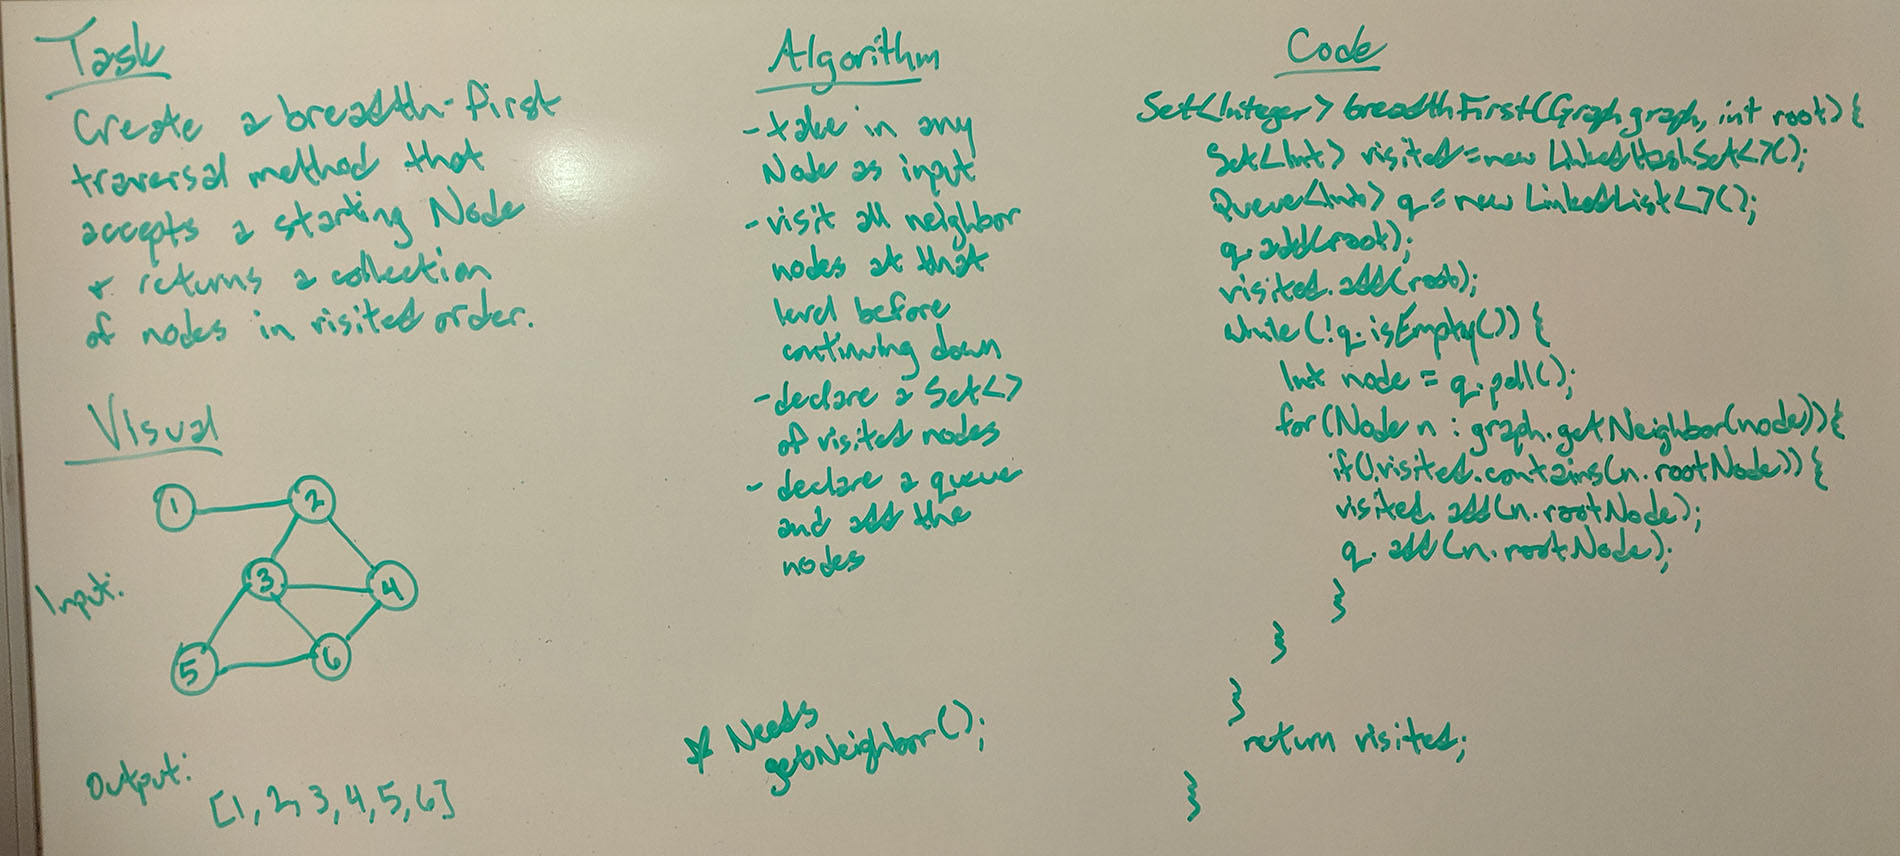 Task
Create a breadth-first
traversal method that
accepts a starting Node
& returns a collection
of nodes in visited order.
Visual
Input:
1
2
3
4
5
6
Output:
[1, 2, 3, 4, 5, 6]
Algorithm
- take in any
Node as input
- visit all neighbor
nodes at that
level before
continuing down
- declare a Set<>
of visited nodes
- declare a queue
and add the
nodes
* Needs
getNeighbor();
Code
Set<Integer> breadthFirst(Graph graph, int root) {
Set<Int> visited = new LinkedHashSet<>();
Queue<Int> q = new LinkedList<>();
q.add(root);
visited.add(root);
while(!q.isEmpty()) {
Int node = q.poll();
for(Node n : graph.getNeighbor(node)){
if(!visited.contains(n.rootNode)) {
visited.add(n.rootNode);
q.add(n.rootNode);
}
}
}
return visited;
}